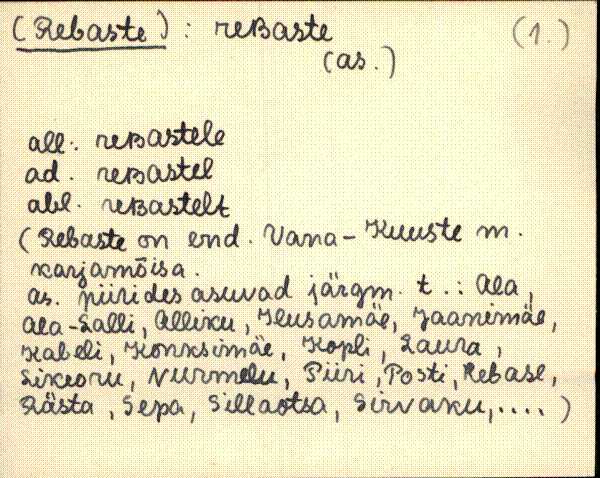 (Rebaste) : reBaste (1.)
(as.)
all. reBastele
ad. reBastel
abl. reBastelt
(Rebaste on end. Vana-Kuuste m.
karjamõisa.
as. piirides asuvad järgm. t.: Ala,
Ala-Lalli, Alliku, Ilusamäe, Jaanimäe,
Kabeli, Konksimäe, Kopli, Laura,
Sikeoru, Nurmelu, Piiri, Posti, Rebase,
Rästa, Sepa, Sillaotsa, Sirvaku,....)